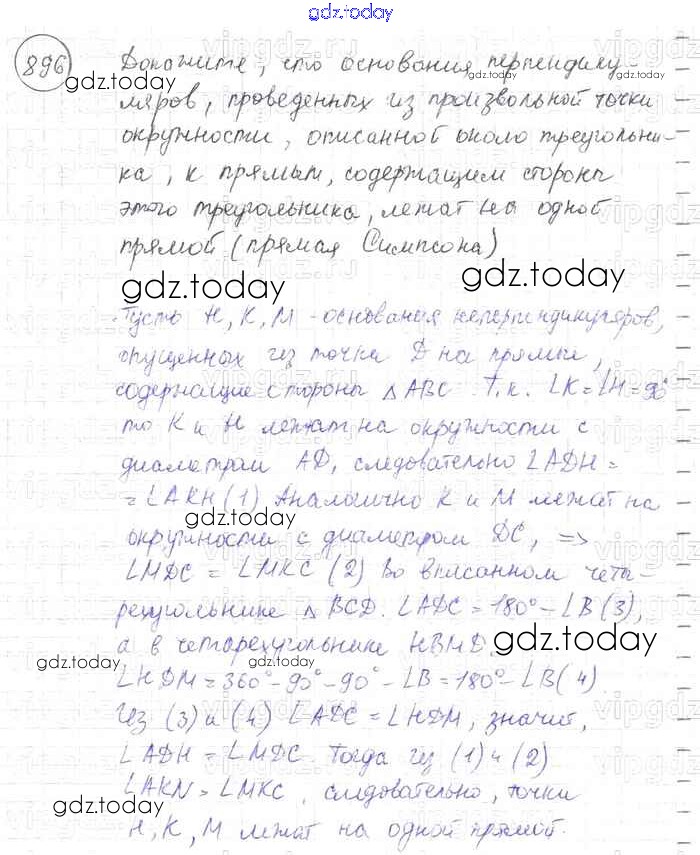 gdz.today
896 Докажите, что основания перпендику-
gdz.today
ляров, проведенных из произвольной точки
окружности, описанной около треугольни-
ка, к прямым, содержащим стороны
этого треугольника, лежат на одной
прямой (прямая Симпсона)
gdz.today gdz.today
Пусть H, K, M - основания перпендикуляров,
опущенных из точки D на прямые,
содержащие стороны △ ABC. Т.к. ∠K = ∠H = 90°
то K и H лежат на окружности с
диаметром AD, следовательно ∠ADH =
= ∠AKH (1) Аналогично K и M лежат на
gdz.today
окружности с диаметром DC, =>
∠MDC = ∠MKC (2) Во вписанном четы-
рехугольнике △ BCD. ∠ADC = 180° - ∠B (3),
а в четарехугольнике HBMD.
gdz.today gdz.today gdz.today
∠HDM = 360° - 90° - 90° - ∠B = 180° - ∠B (4)
Из (3) и (4) ∠ADC = ∠HDM, значит,
∠ADH = ∠MDC. Тогда из (1) и (2)
∠AKN = ∠MKC, следовательно, точки
gdz.today
H, K, M лежат на одной прямой.